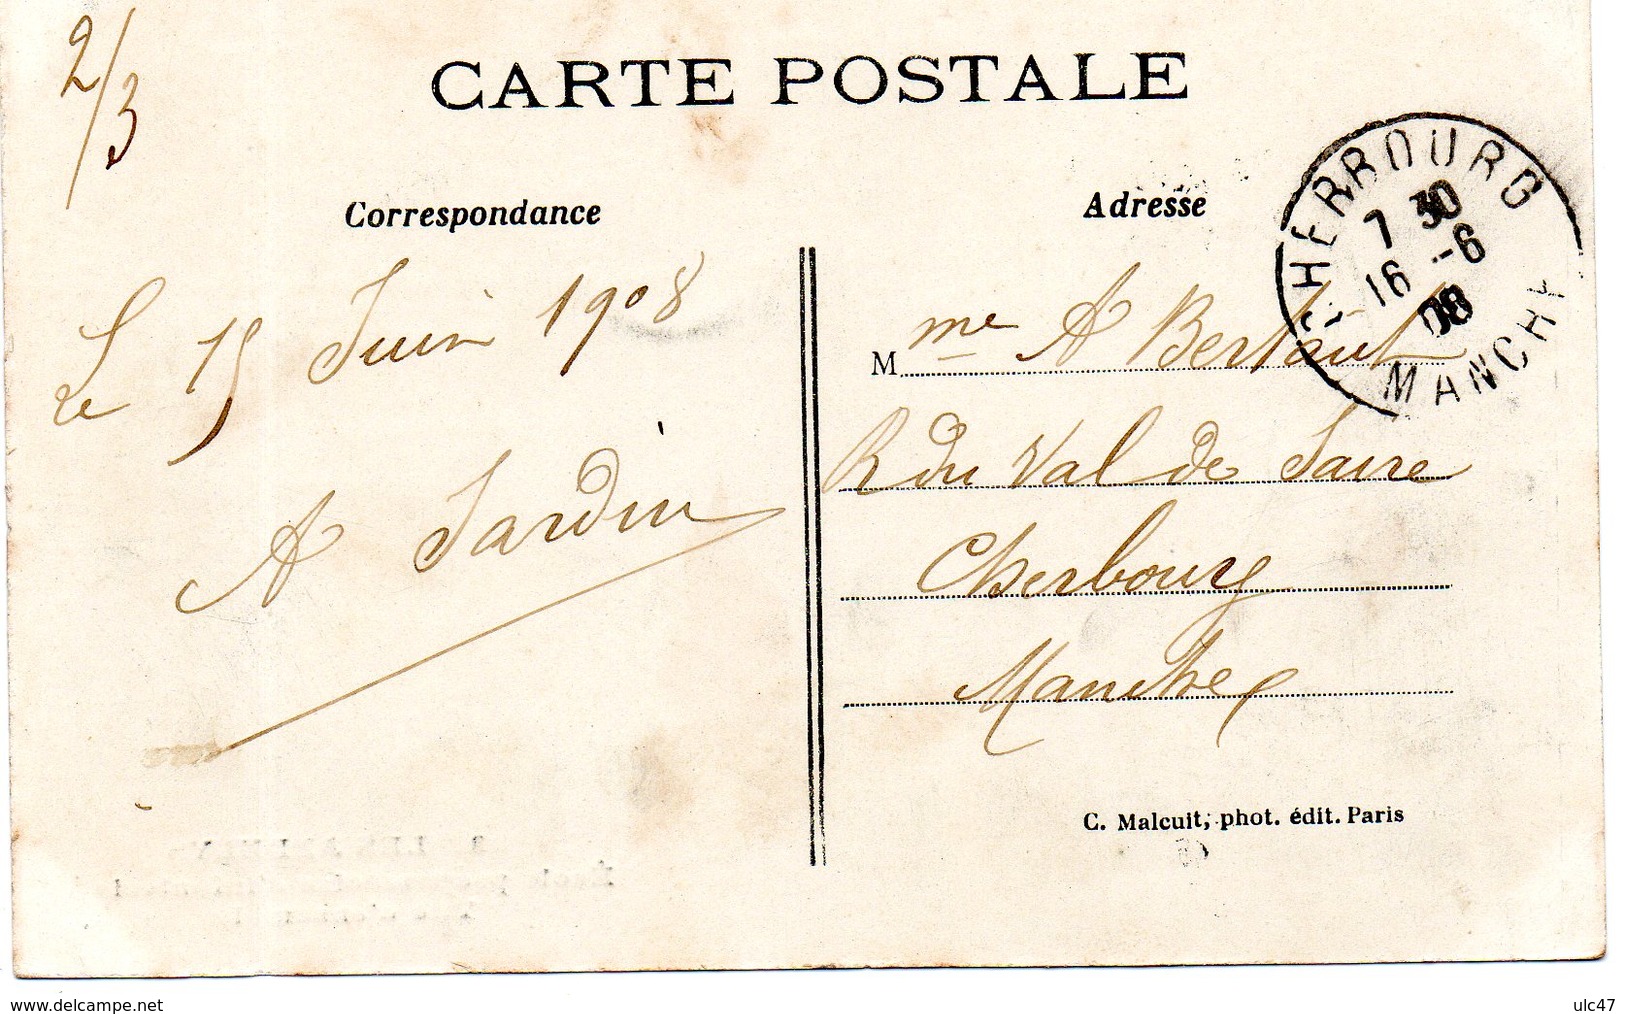 2/3
CARTE POSTALE
Correspondance
Le 15 Juin 1908
A Jardin
Adresse
CHERBOURG
7 30
16 -6
08
MANCHE
M me A Bertaut
R du Val de Saire
Cherbourg
Manche
C. Malcuit, phot. édit. Paris
www.delcampe.net
ulc47